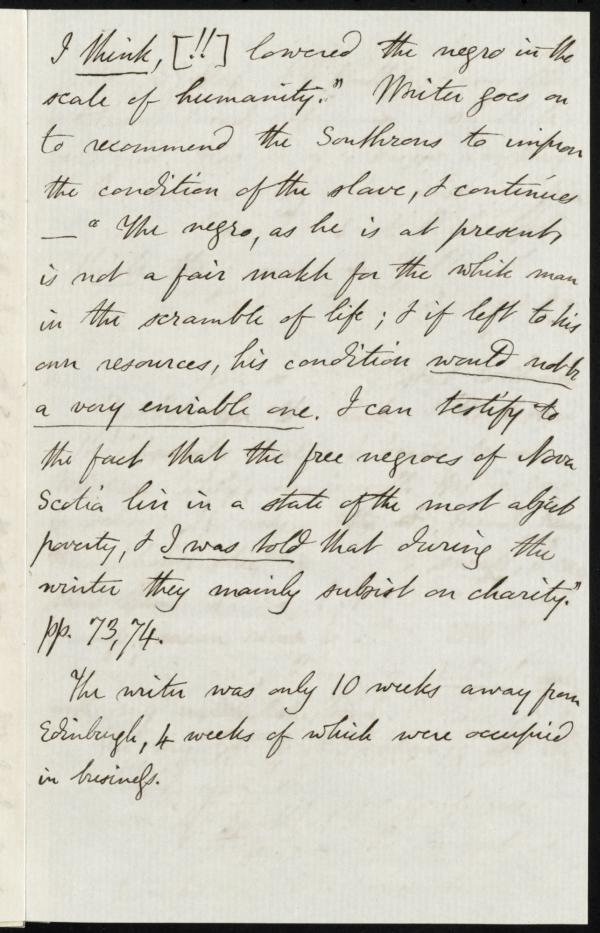 I think, [!!] lowered the negro in the
scale of humanity." Writer goes on
to recommend the Southrons to improve
the condition of the slave, & continues
— "The negro, as he is at present,
is not a fair match for the white man
in the scramble of life; & if left to his
own resources, his condition would not be
a very enviable one. I can testify to
the fact that the free negroes of Nova
Scotia live in a state of the most abject
poverty, & I was told that during the
winter they mainly subsist on charity."
pp. 73, 74.
The writer was only 10 weeks away from
Edinburgh, 4 weeks of which were occupied
in business.